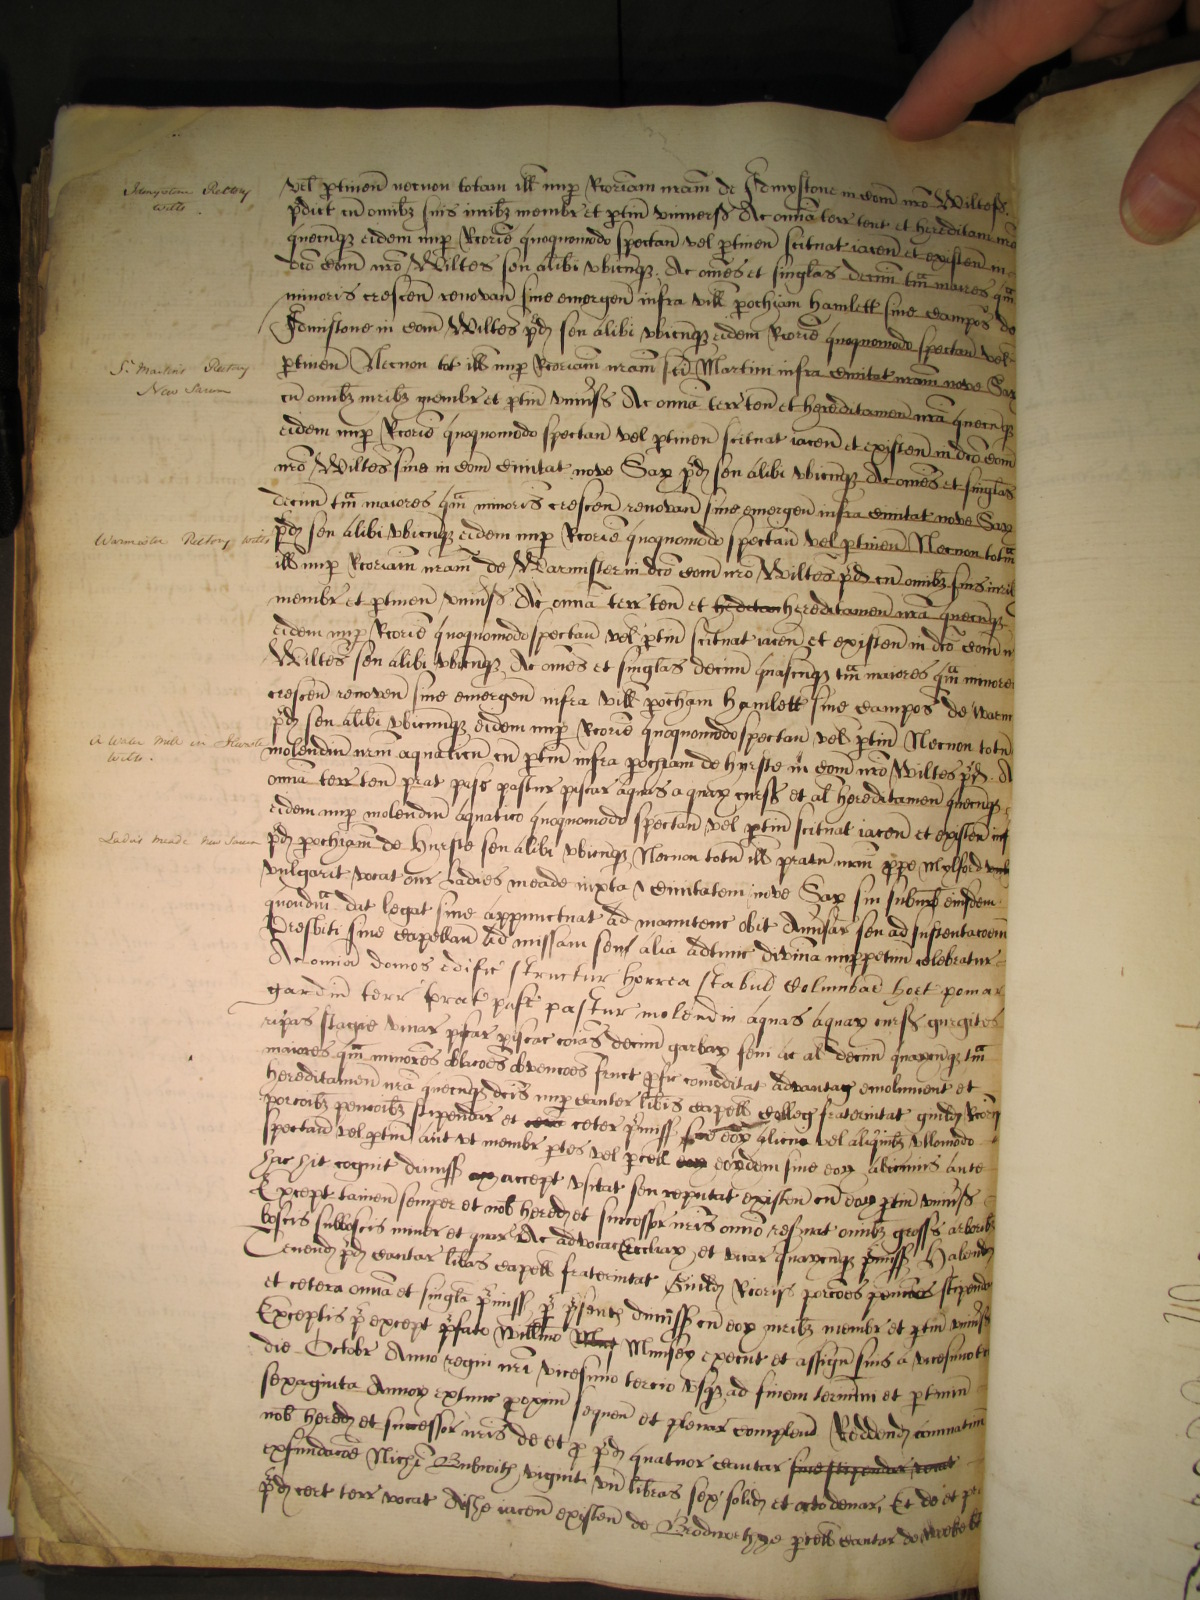 Idmystone Rectory
Wilts.
vel ptinen necnon totam ill nup Rcoriam nram de Idmystone in com nro Wiltes
pdict cu omibz suis iuribz membr et ptin vniuers Ac omia terr tent et hereditam nra
quecuqz eidem nup Rcorie quoquomodo spectan vel ptinen scituat iacen et existen in
dco com nro Wiltes seu alibi vbicuqz Ac omes et singlas decim tam maiores qam
minoris crescen renovan siue emergen infra vill pochiam hamlett siue campos de
Idmistone in com Wiltes pd seu alibi vbicuqz eidem Rcorie quoquomodo spectan vel
St Martins Rectory
New Sarum
ptinen Necnon tot ill nup Rcoriam nram sci Martini infra ciuitat nram nove Sar
cu omibz iuribz membr et ptin vniuss Ac omia terr ten et hereditamen nra quecuqz
eidem nup Rcorie quoquomodo spectan vel ptinen scituat iacen et existen in dco com
nro Wiltes siue in com ciuitat nove Sar pd seu alibi vbicuqz Ac omes et singlas
decim tam maiores qam minoris crescen renovan siue emergen infra ciuitat nove Sar
Warmister Rectory Wilts
pd seu alibi vbicuqz eidem nup Rcorie quoquomodo spectan vel ptinen Necnon totam
ill nup Rcoriam nram de Warmister in dco com nro Wiltes pd cu omibz suis iurib
membr et ptinen vniuss Ac omia terr ten et heditan hereditamen nra quecuqz
eidem nup Rcorie quoquomodo spectan vel ptin scituat iacen et existen in dco com n
Wiltes seu alibi vbicuqz Ac omes et singlas decim quascuqz tam maiores qam minores
crescen renoven siue emergen infra vill pochiam hamlett siue campos de Warm
pd seu alibi vbicumqz eidem nup Rcorie quoquomodo spectan vel ptin Necnon totu
A Water Mill in
Wilts.
molendin nrm aquaticu cu ptin infra pochiam de hurste in com nro Wiltes pd A
omia terr ten prat pasc pastur piscar aquas aquar curss et al hereditamen quecuqz
eidem nup molendin aquatico quoquomodo spectan vel ptin scituat iacen et existen inf
Ladies Meade New Sarum
pd pochiam de hurste seu alibi vbicuqz Necnon totu ill pratu nrm ppe Mylford
vulgarit vocat our Ladies meade iuxta ciuitatem nove Sar siu suburb eiusdem
quondm dat legat siue appunctuat ad manutenc obit Aniusar seu ad sustentacoem
Presbiti siue capellan ad missam seu alia adtunc divina imppetuu celebratur
Ac omia domos edific structur horrea stabul columbar hort pomar
gardin terr prat pasc pastur molendin aquas aquar curss gurgites
ripas stagn vinar piscar piscac coias decim garbar feni ac al decim quascuqz tam
maiores qam minores oblacoes obvencoes fruct pfic comoditat advantag emolument et
hereditamen nra quecuqz dcis nup cantar libis capell colleg fraternitat guild Rcorijs
porcoibz pencoibz stipendar et ceter pmiss siue eor alicui vel aliquibz vllomodo
spectan vel ptin aut vt membr ptes vel pcell eordem siue eor alicuius ante
hac hit cognit dimiss accept vsitat seu reputat existen cu eor ptin vniuss
Except tamen semper et nob hered et successor nris omio reseruat omibz grosss arboribz
boscis subboscis miner et quar Ac advocac Eccliar et vicar quarcuqz pmiss Habend
Tenend pd cantar libas capell fraternitat Guild Rcorijs porcoes pencoes stipend
et cetera omia et singla pmiss p psentes dimiss cu eor iuribz membr et ptin vniuss
Exceptis p except pfato Willmo Mumsey execut et assign suis a vicesimo
die Octobr Anno regni nri vicesimo tercio vsqz ad finem termini et ptmin
sexaginta Annor extunc poxim sequen et plenar complend Reddend annuatim
nob hered et successor nris de et p pd quatuor cantar siue stipendar vocat
exfundacoe Nichi Bubwith viginti vn libras sex solid et octo denar, Et de et p
pd cert terr vocat iacen existen de pcell cantar de